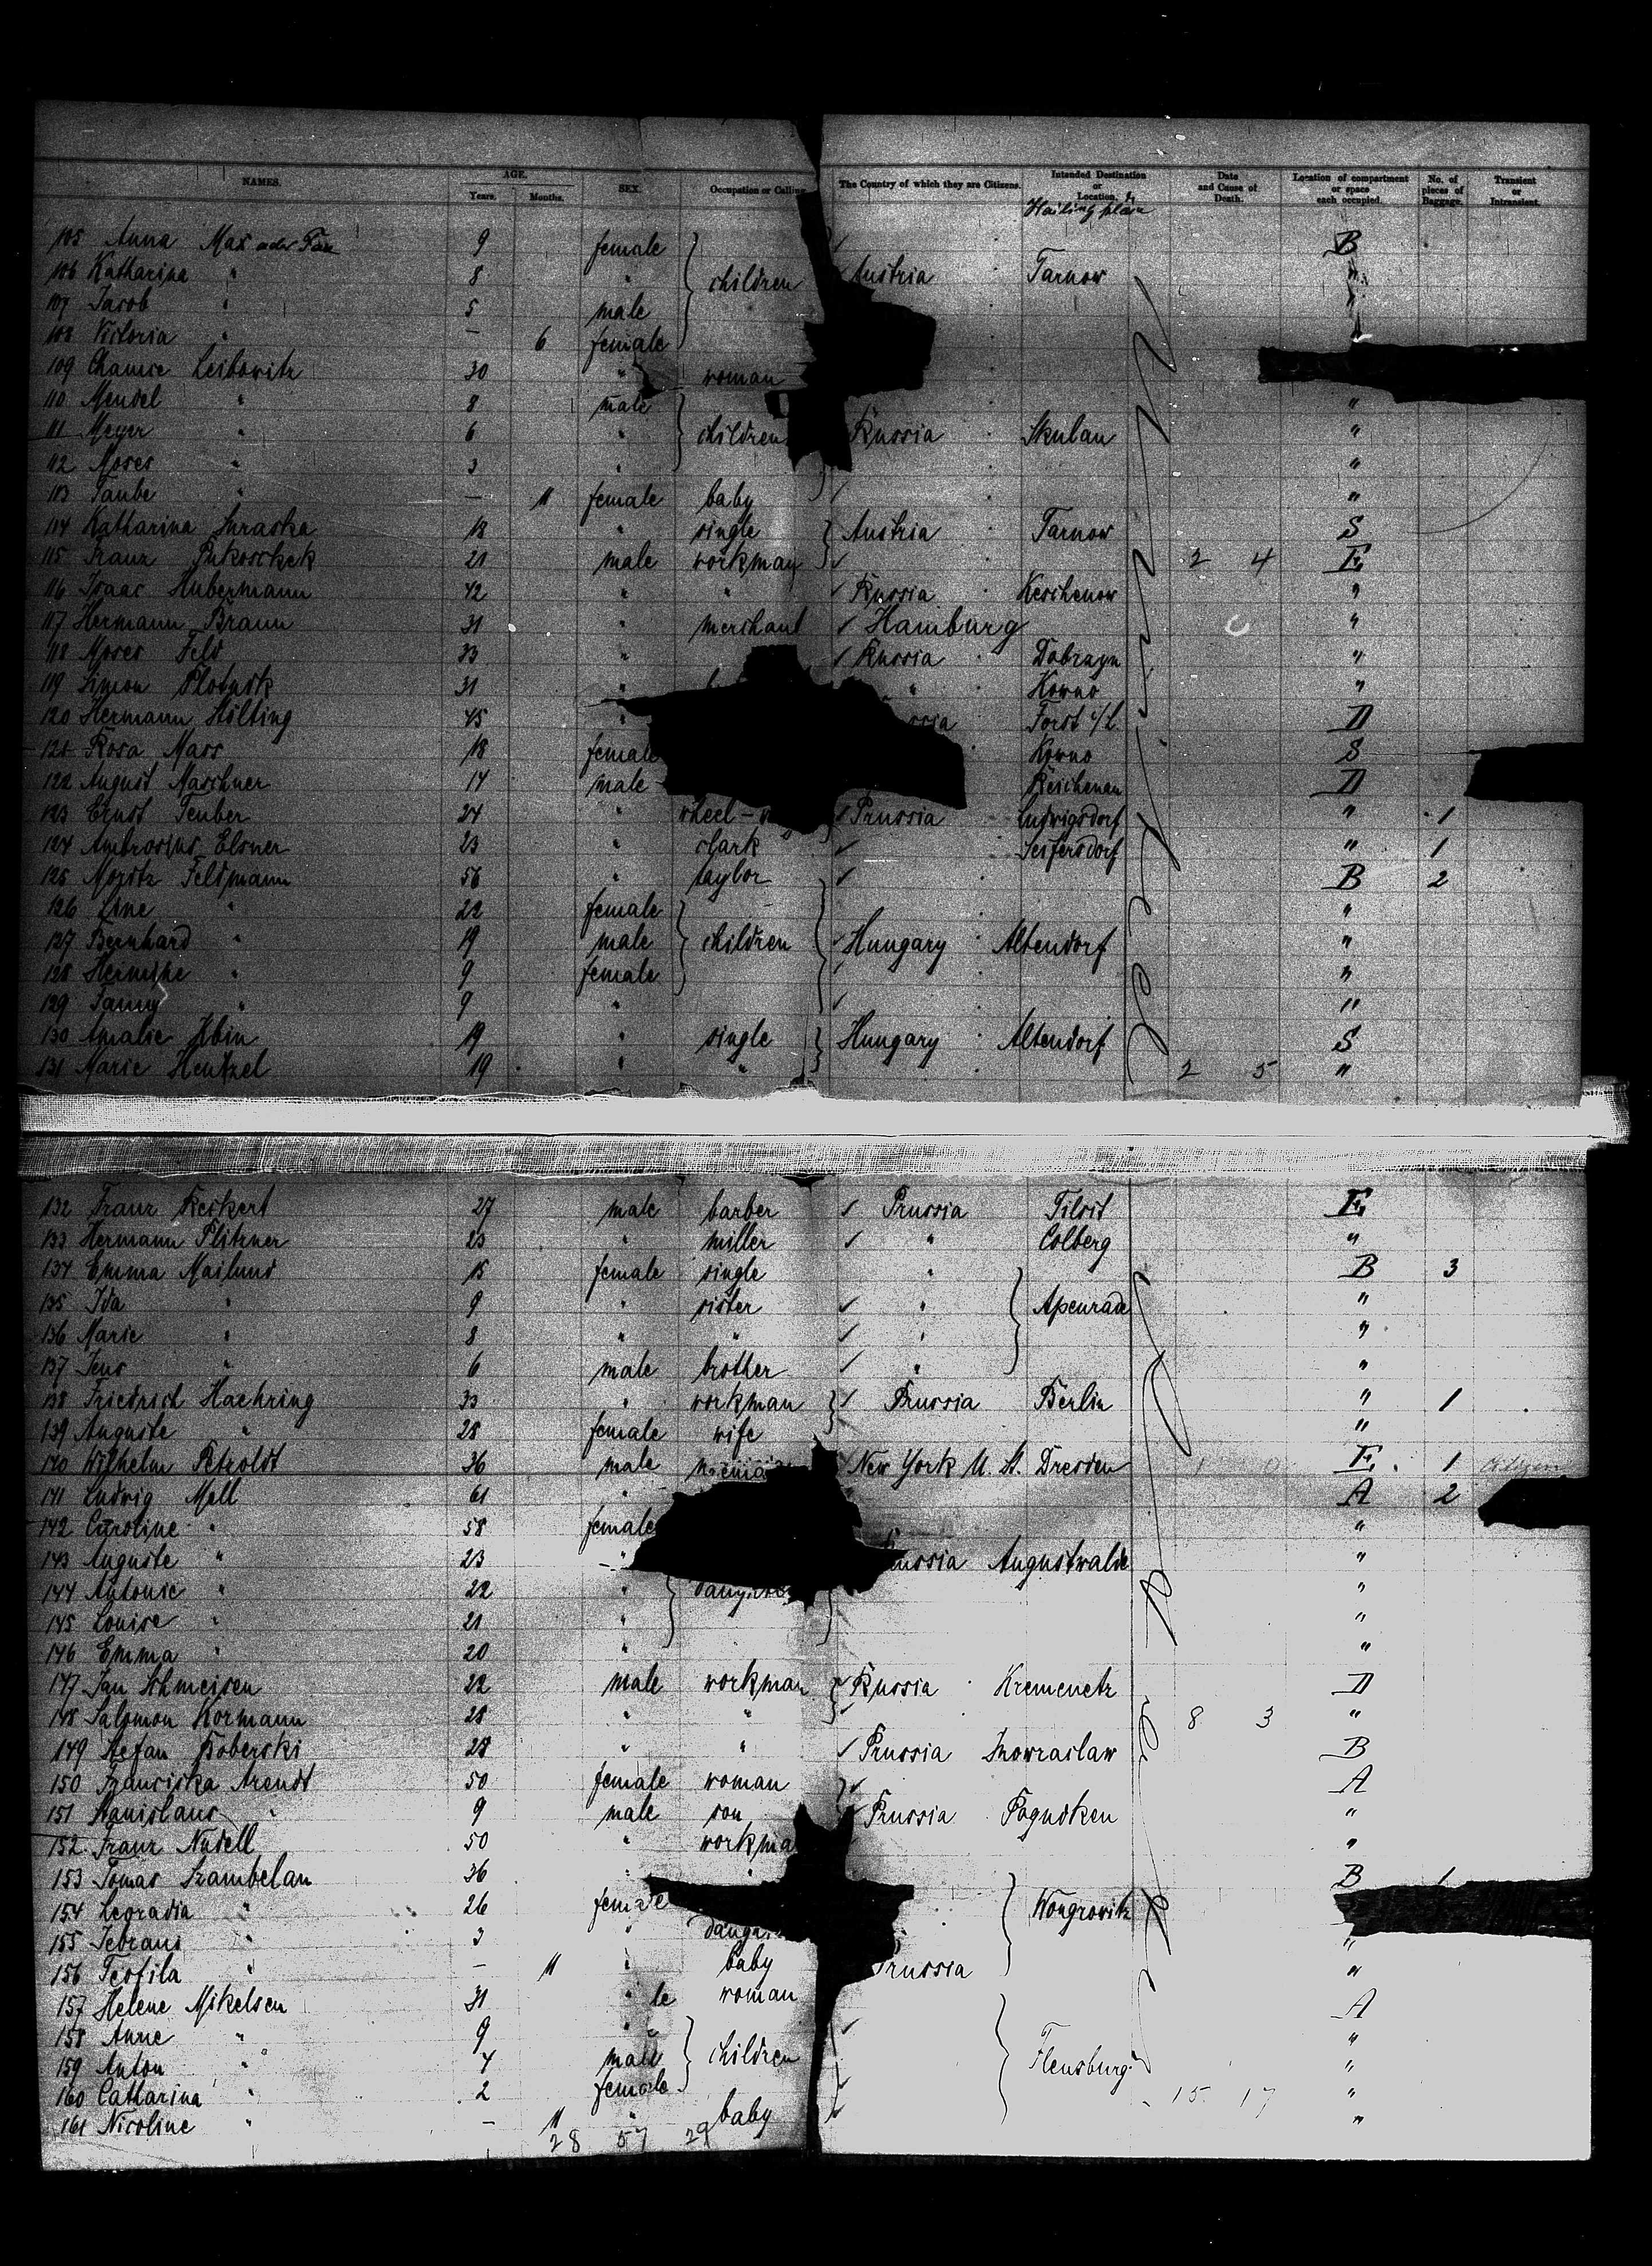 NAMES. AGE. Years. Months. SEX. Occupation or Calling. The Country of which they are Citizens. Intended Destination or Location, & Hailing place Date and Cause of Death. Location of compartment or space each occupied. No. of pieces of Baggage. Transient or Intransient.
105 Anna Max oder 9 female B
106 Katharina " 8 " children Austria Tarnow "
107 Jacob " 5 male "
108 Victoria " — 6 female
109 Leibowitz 30 " woman
110 Mendel " 8 male "
111 Meyer " 6 " children Russia Skulan "
112 Moses " 3 " "
113 Taube " — 11 female baby "
114 Katharina 18 " single Austria Tarnow S
115 Franz 21 male workman 2 4 E
116 Isaac Hubermann 42 " " Russia Keschenow "
117 Hermann Braun 31 " merchant Hamburg "
118 Moses Feld 33 " Russia Dobrzyn "
119 Simon Plotnik 31 " " Kowno "
120 Hermann Stölting 45 " Forst i/L D
121 Rosa Mass 18 female Kowno S
122 August Maschner 14 male Reichenau D
123 Ernst Teuber 24 " wheel- Prussia Ludwigsdorf " 1
124 Ambrosius Elsner 23 " clark Seifersdorf " 1
125 Moritz Feldmann 56 " taylor B 2
126 Line " 22 female "
127 Bernhard " 19 male children Hungary Altendorf "
128 " 9 female "
129 Fanny " 9 " "
130 Amalie 19 " single Hungary Altendorf S
131 Marie Hentzel 19 " " 2 5 "
132 Franz Reikert 27 male barber Prussia Tilsit E
133 Hermann Plitzner 23 " miller " Colberg "
134 Emma Mailund 15 female single " B 3
135 Ida " 9 " sister " Apenrade "
136 Marie " 8 " " " "
137 Jens " 6 male brother " "
138 Friedrich Haehring 33 " workman Prussia Berlin " 1
139 Auguste " 28 female wife "
140 Wilhelm Petzoldt 36 male New York U. St. Dresden E 1 Citizen
141 Ludwig Moll 61 " A 2
142 Caroline " 58 female "
143 Auguste " 23 " Augustwalde "
144 Antonie " 22 " "
145 Louise " 21 " "
146 Emma " 20 " "
147 Jan Schmeisen 22 male workman Russia Kremenetz D
148 Salomon Kormann 28 " " 8 3 "
149 Stefan Boberski 28 " " Prussia Inowraslaw B
150 Franciska Arendt 50 female woman A
151 Stanislaus " 9 male son Prussia Pogudken "
152 Franz Nadell 50 " workma "
153 Tomas Szambelan 36 " " B 1
154 Leoradia " 26 female Wongrowitz
155 " 3 " "
156 Teofila " — 11 " baby Prussia "
157 Helene Mikelsen 31 " woman A
158 Anne " 9 " "
159 Anton " 4 male children Flensburg "
160 Catharina " 2 female 15 17 "
161 Nicoline " — 11 " baby "
28 57 29